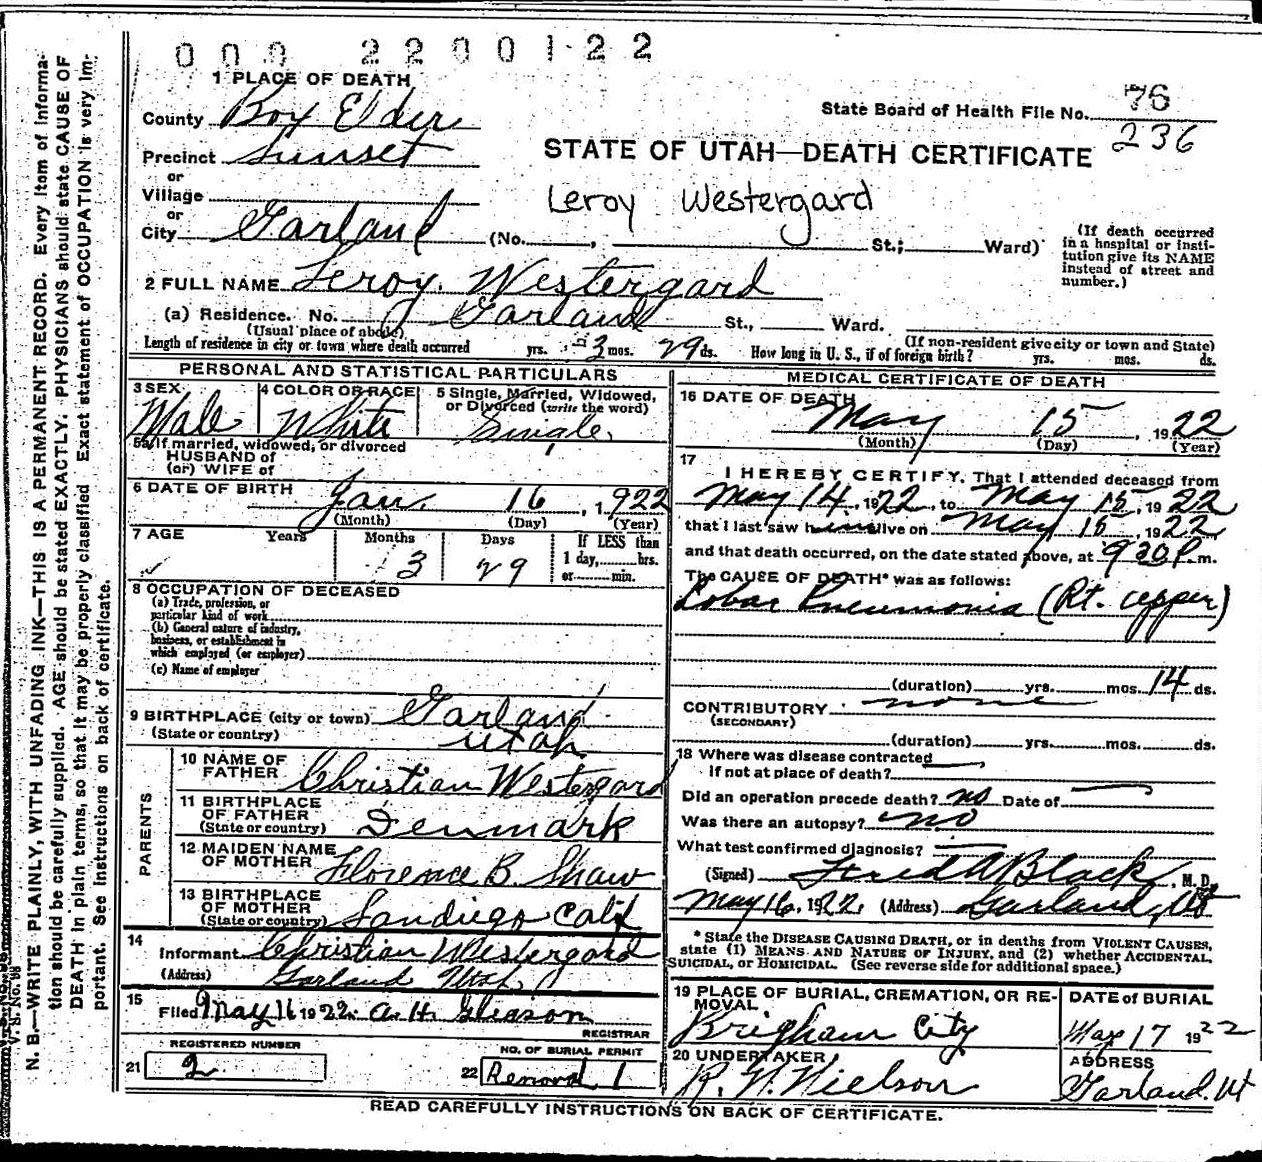 000 2200122
1 PLACE OF DEATH
County Box Elder
State Board of Health File No. 76
236
Precinct Sunset
STATE OF UTAH—DEATH CERTIFICATE
or
Village
Leroy Westergard
or
City Garland (No. , St.; Ward)
(If death occurred in a hospital or institution give its NAME instead of street and number.)
2 FULL NAME Leroy Westergard
(a) Residence. No. Garland St., Ward.
(Usual place of abode) (If non-resident give city or town and State)
Length of residence in city or town where death occurred yrs. 3 mos. 29 ds. How long in U. S., if of foreign birth? yrs. mos. ds.
PERSONAL AND STATISTICAL PARTICULARS
3 SEX Male
4 COLOR OR RACE White
5 Single, Married, Widowed, or Divorced (write the word) Single
5a If married, widowed, or divorced
HUSBAND of
(or) WIFE of
6 DATE OF BIRTH Jan. 16, 1922
(Month) (Day) (Year)
7 AGE Years Months Days If LESS than
3 29 1 day, hrs.
or min.
8 OCCUPATION OF DECEASED
(a) Trade, profession, or
particular kind of work
(b) General nature of industry,
business, or establishment in
which employed (or employer)
(c) Name of employer
9 BIRTHPLACE (city or town) Garland
(State or country) Utah
PARENTS
10 NAME OF FATHER Christian Westergard
11 BIRTHPLACE OF FATHER (State or country) Denmark
12 MAIDEN NAME OF MOTHER Florence B. Shaw
13 BIRTHPLACE OF MOTHER (State or country) Sandiego Calif
14
Informant Christian Westergard
(Address) Garland Utah
15
Filed May 16 1922. A. H. Gleason
REGISTRAR
REGISTERED NUMBER
21 2
NO. OF BURIAL PERMIT
22 Removal 1
MEDICAL CERTIFICATE OF DEATH
16 DATE OF DEATH
May 15, 1922
(Month) (Day) (Year)
17
I HEREBY CERTIFY, That I attended deceased from
May 14, 1922, to May 15, 1922
that I last saw him alive on May 15, 1922
and that death occurred, on the date stated above, at 9 30 P. m.
The CAUSE OF DEATH* was as follows:
Lobar Pneumonia (Rt. upper)
(duration) yrs. mos. 14 ds.
CONTRIBUTORY none
(SECONDARY)
(duration) yrs. mos. ds.
18 Where was disease contracted
If not at place of death?
Did an operation precede death? no Date of
Was there an autopsy? no
What test confirmed diagnosis?
(Signed) Fred A Black, M. D.
May 16, 1922. (Address) Garland, Ut
* State the DISEASE CAUSING DEATH, or in deaths from VIOLENT CAUSES,
state (1) MEANS AND NATURE OF INJURY, and (2) whether ACCIDENTAL,
SUICIDAL, or HOMICIDAL. (See reverse side for additional space.)
19 PLACE OF BURIAL, CREMATION, OR REMOVAL
Brigham City
DATE of BURIAL
May 17 1922
20 UNDERTAKER
R. W. Nielson
ADDRESS
Garland. Ut
READ CAREFULLY INSTRUCTIONS ON BACK OF CERTIFICATE.
N. B.—WRITE PLAINLY, WITH UNFADING INK—THIS IS A PERMANENT RECORD. Every item of informa-
tion should be carefully supplied. AGE should be stated EXACTLY. PHYSICIANS should state CAUSE OF
DEATH in plain terms, so that it may be properly classified. Exact statement of OCCUPATION is very im-
portant. See instructions on back of certificate.